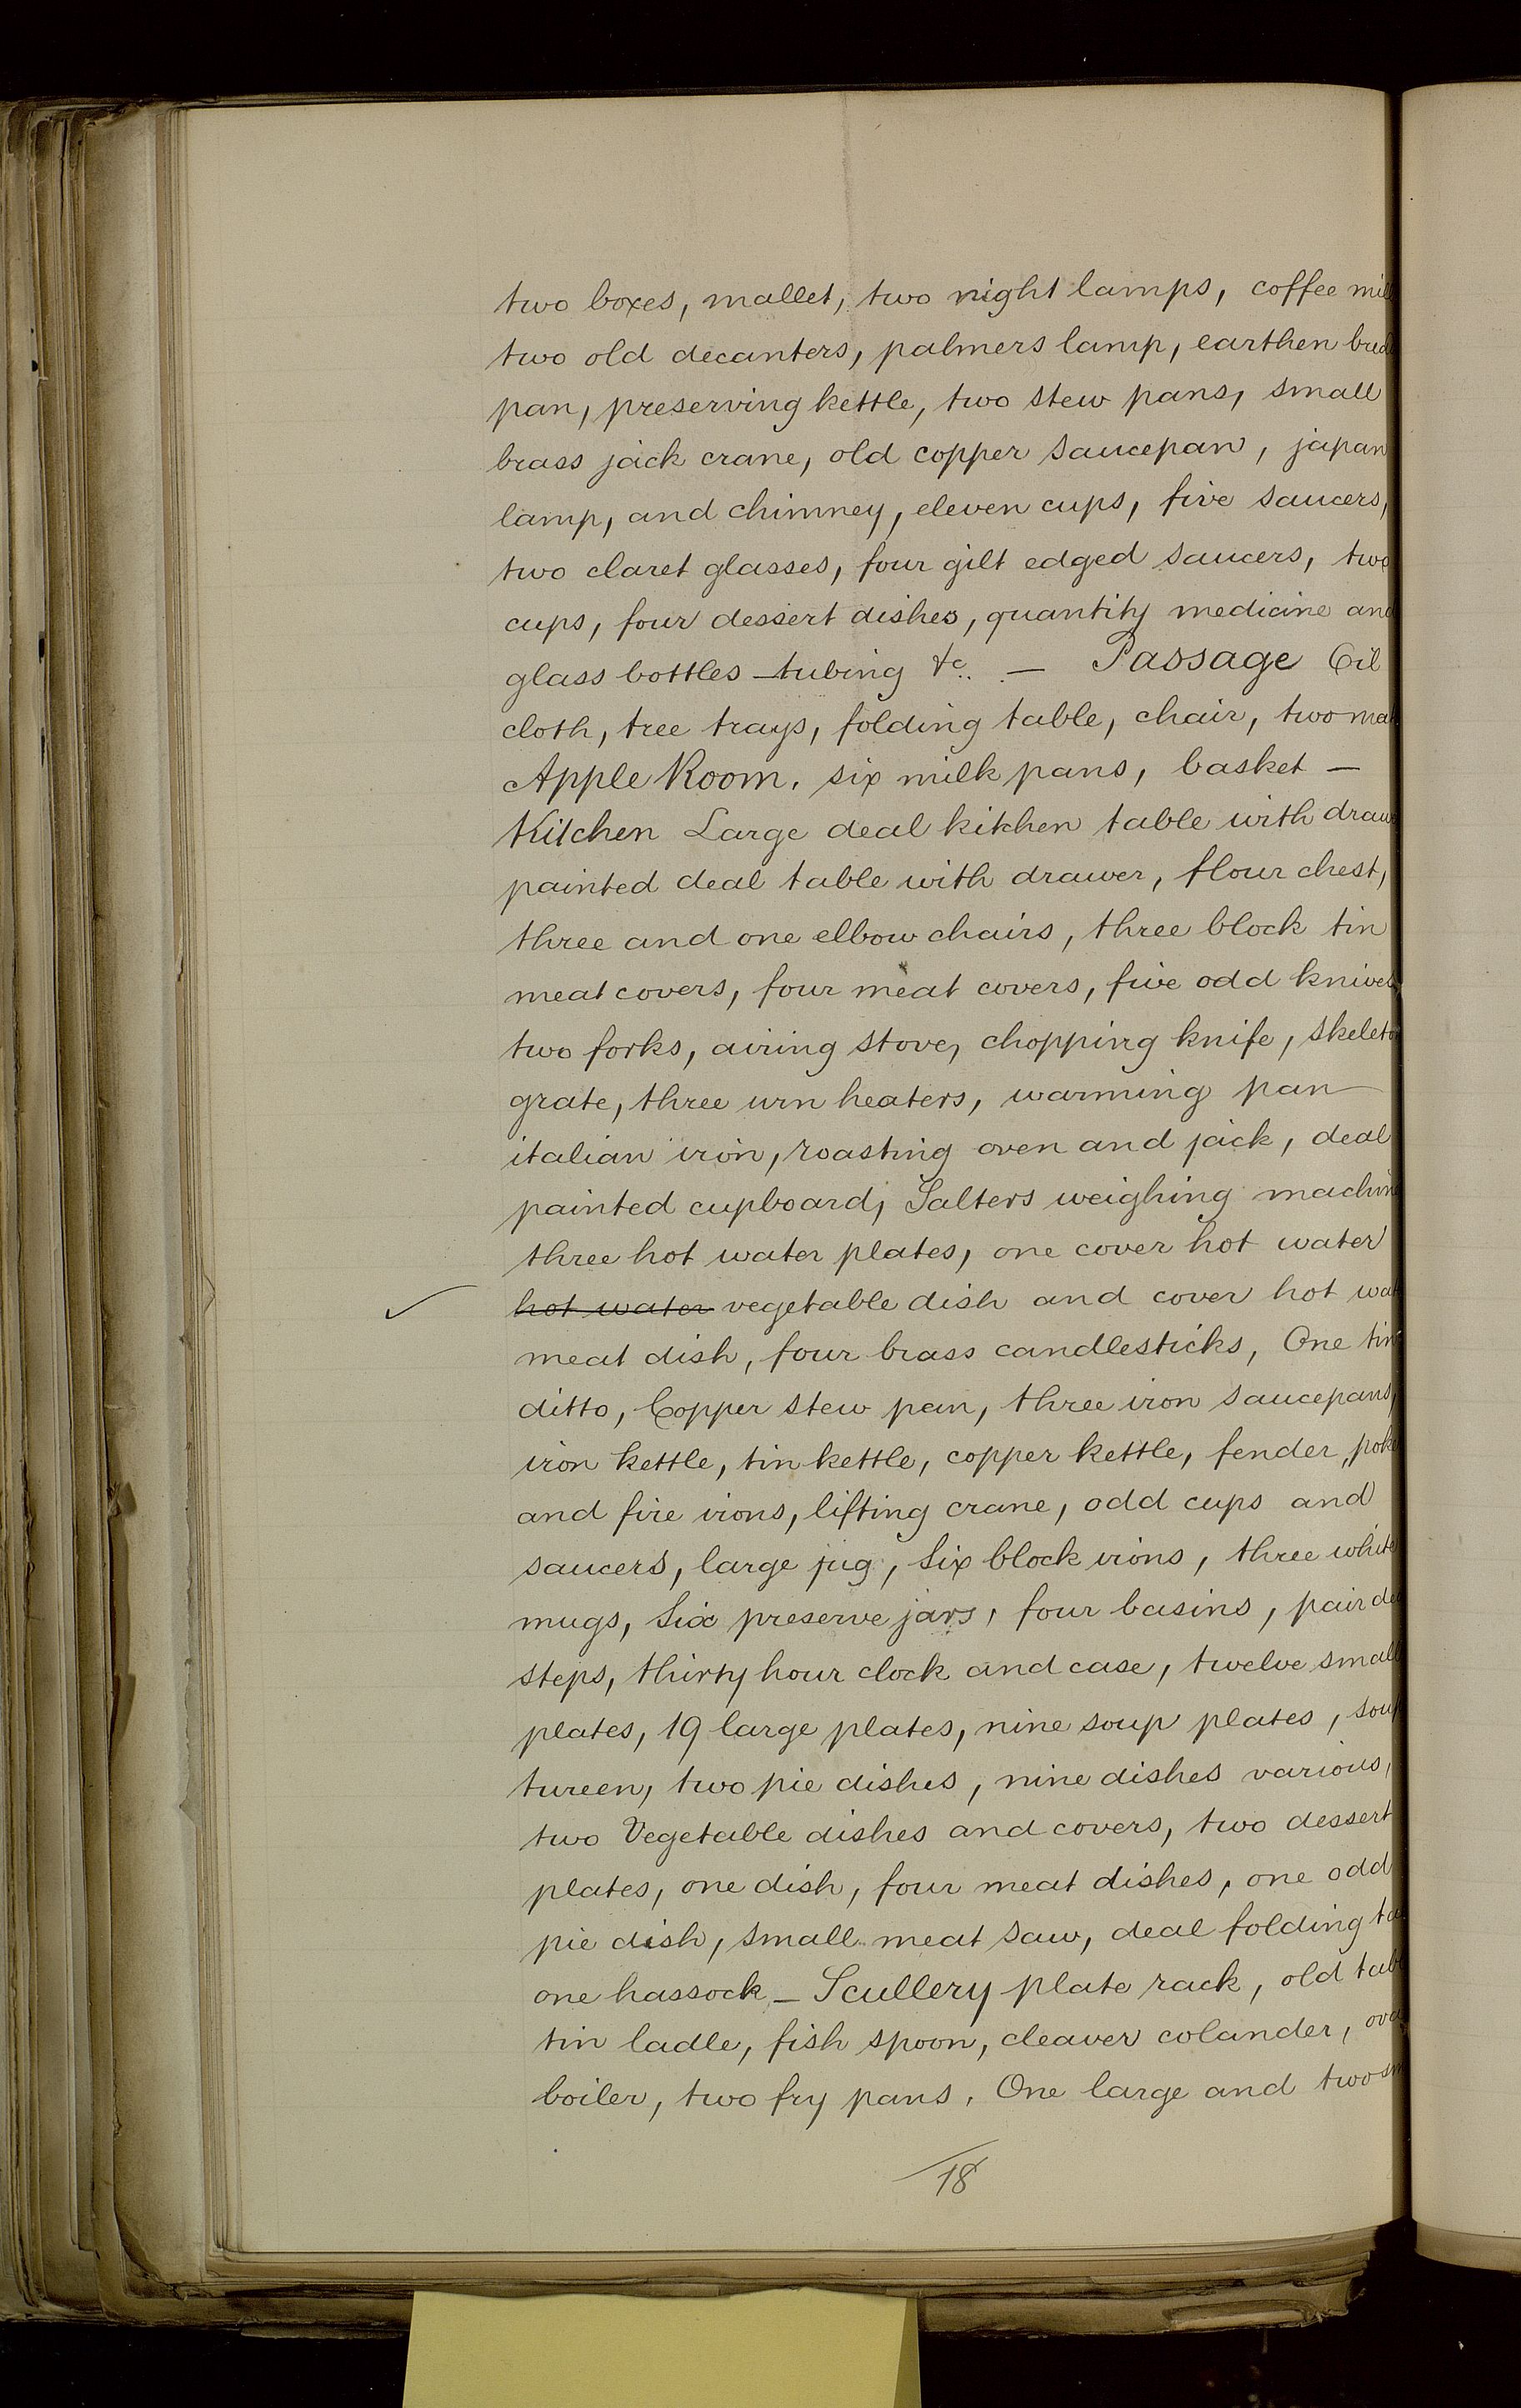 two boxes, mallet, two night lamps, coffee mill
two old decanters, palmers lamp, earthen
pan, preserving kettle, two stew pans, small
brass jack crane, old copper saucepan, japan
lamp, and chimney, eleven cups, five saucers,
two claret glasses, four gilt edged saucers, two
cups, four dessert dishes, quantity medicine and
glass bottles - tubing &c. - Passage Oil
cloth, tree trays, folding table, chair, two
Apple Room. six milk pans, basket -
Kitchen Large deal kitchen table with draw
painted deal table with drawer, flour chest,
three and one elbow chairs, three block tin
meat covers, four meat covers, five odd knives,
two forks, airing stove, chopping knife, skeleton
grate, three urn heaters, warming pan
italian iron, roasting oven and jack, deal
painted cupboard, Salters weighing machine
three hot water plates, one cover hot water
hot water vegetable dish and cover hot wat
meat dish, four brass candlesticks, One tin
ditto, Copper stew pan, three iron saucepans,
iron kettle, tin kettle, copper kettle, fender, poke
and fire irons, lifting crane, odd cups and
saucers, large jug, six block irons, three white
mugs, six preserve jars, four basins, pair de
steps, thirty hour clock and case, twelve small
plates, 19 large plates, nine soup plates, soup
tureen, two pie dishes, nine dishes various,
two Vegetable dishes and covers, two dessert
plates, one dish, four meat dishes, one odd
pie dish, small meat saw, deal folding ta
one hassock - Scullery plate rack, old tab
tin ladle, fish spoon, cleaver colander, ova
boiler, two fry pans. One large and two sm
18